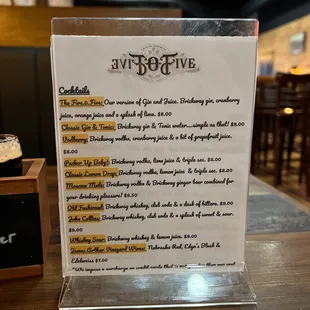 FIVE O FIVE
Cocktails
The Five-o-Five: Our version of Gin and Juice. Brickway gin, cranberry
juice, orange juice and a splash of lime. $8.00
Classic Gin & Tonic: Brickway gin & Tonic water.....simple as that! $8.00
Vodberry: Brickway vodka, cranberry juice & a bit of grapefruit juice.
$8.00
Pucker Up Baby!: Brickway vodka, lime juice & triple sec. $8.00
Classic Lemon Drop: Brickway vodka, lemon juice & triple sec. $8.00
Moscow Mule: Brickway vodka & Brickway ginger beer combined for
your drinking pleasure! $8.50
Old Fashioned: Brickway whiskey, club soda & a dash of bitters. $9.00
John Collins: Brickway whiskey, club soda & a splash of sweet & sour.
$9.00
Whiskey Sour: Brickway whiskey & lemon juice. $9.00
James Arthur Vineyard Wines: Nebraska Red, Edyn's Blush &
Edelweiss $7.00